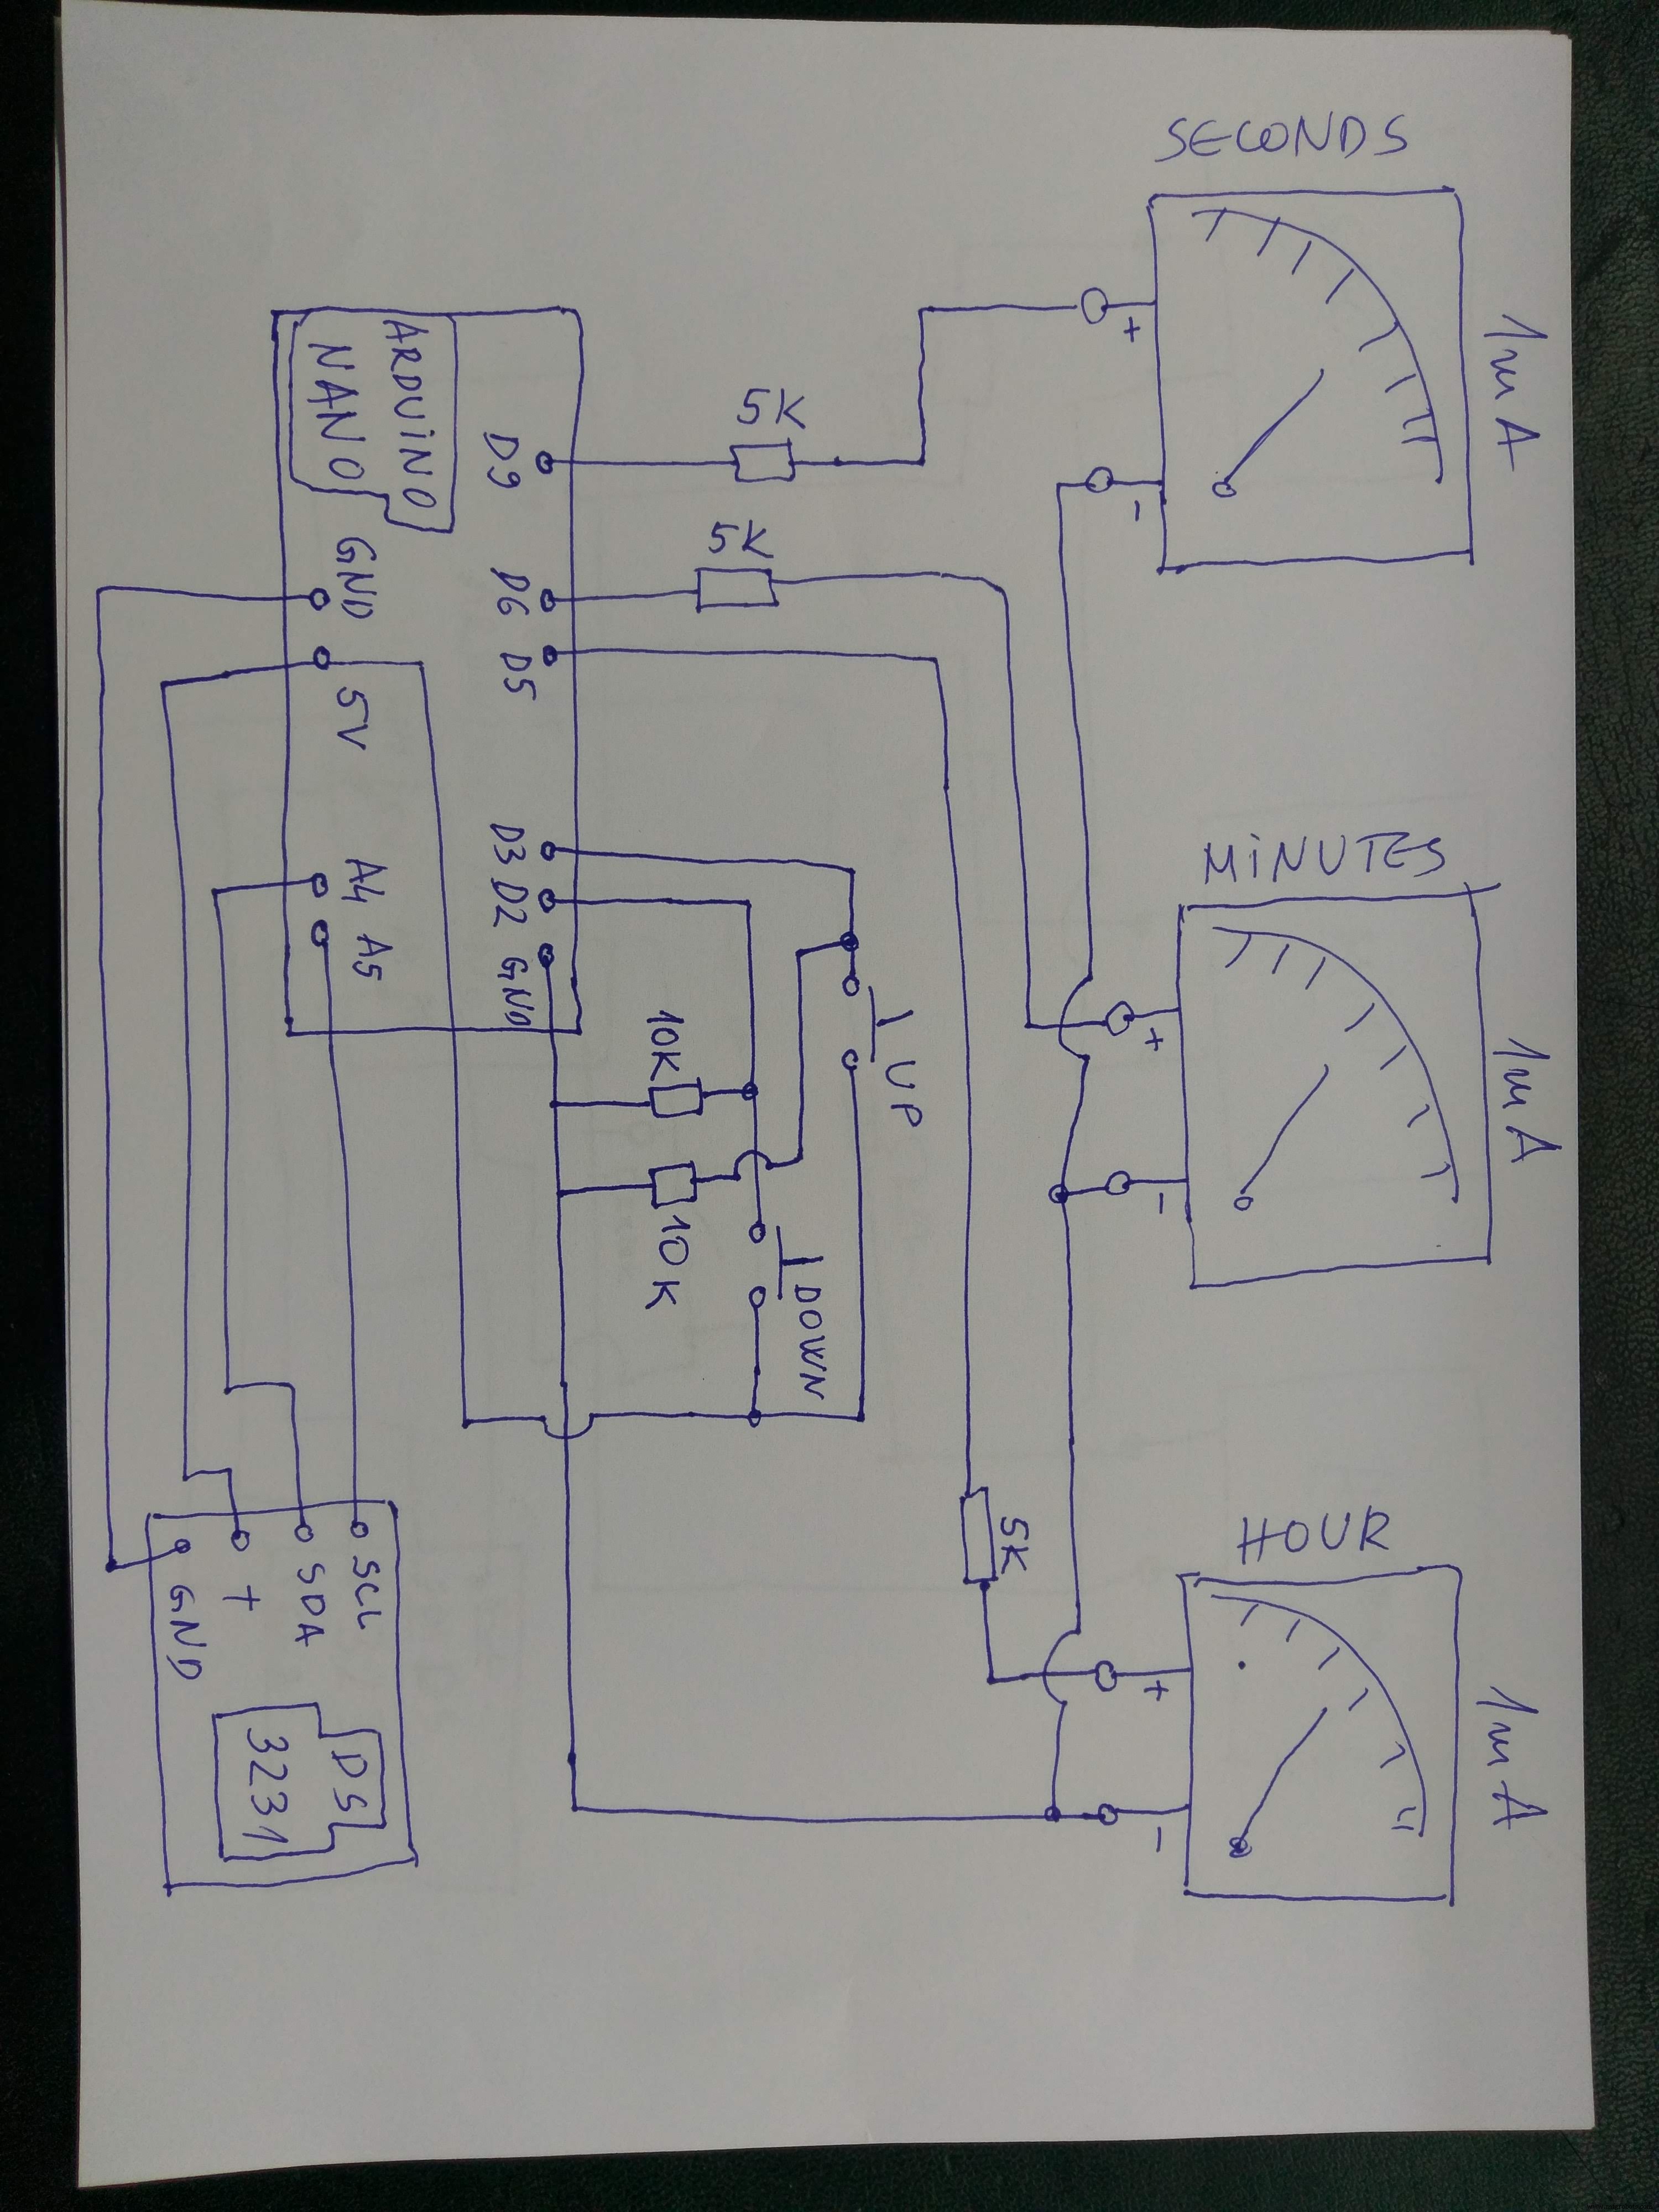 SECONDS
1mA
MINUTES
1mA
HOUR
1mA
+
-
+
-
+
-
5K
5K
5K
UP
DOWN
10K
10K
D9
D6
D5
D3
D2
GND
ARDUiNO
NANO
GND
5V
A4
A5
SCL
SDA
+
GND
DS
3231